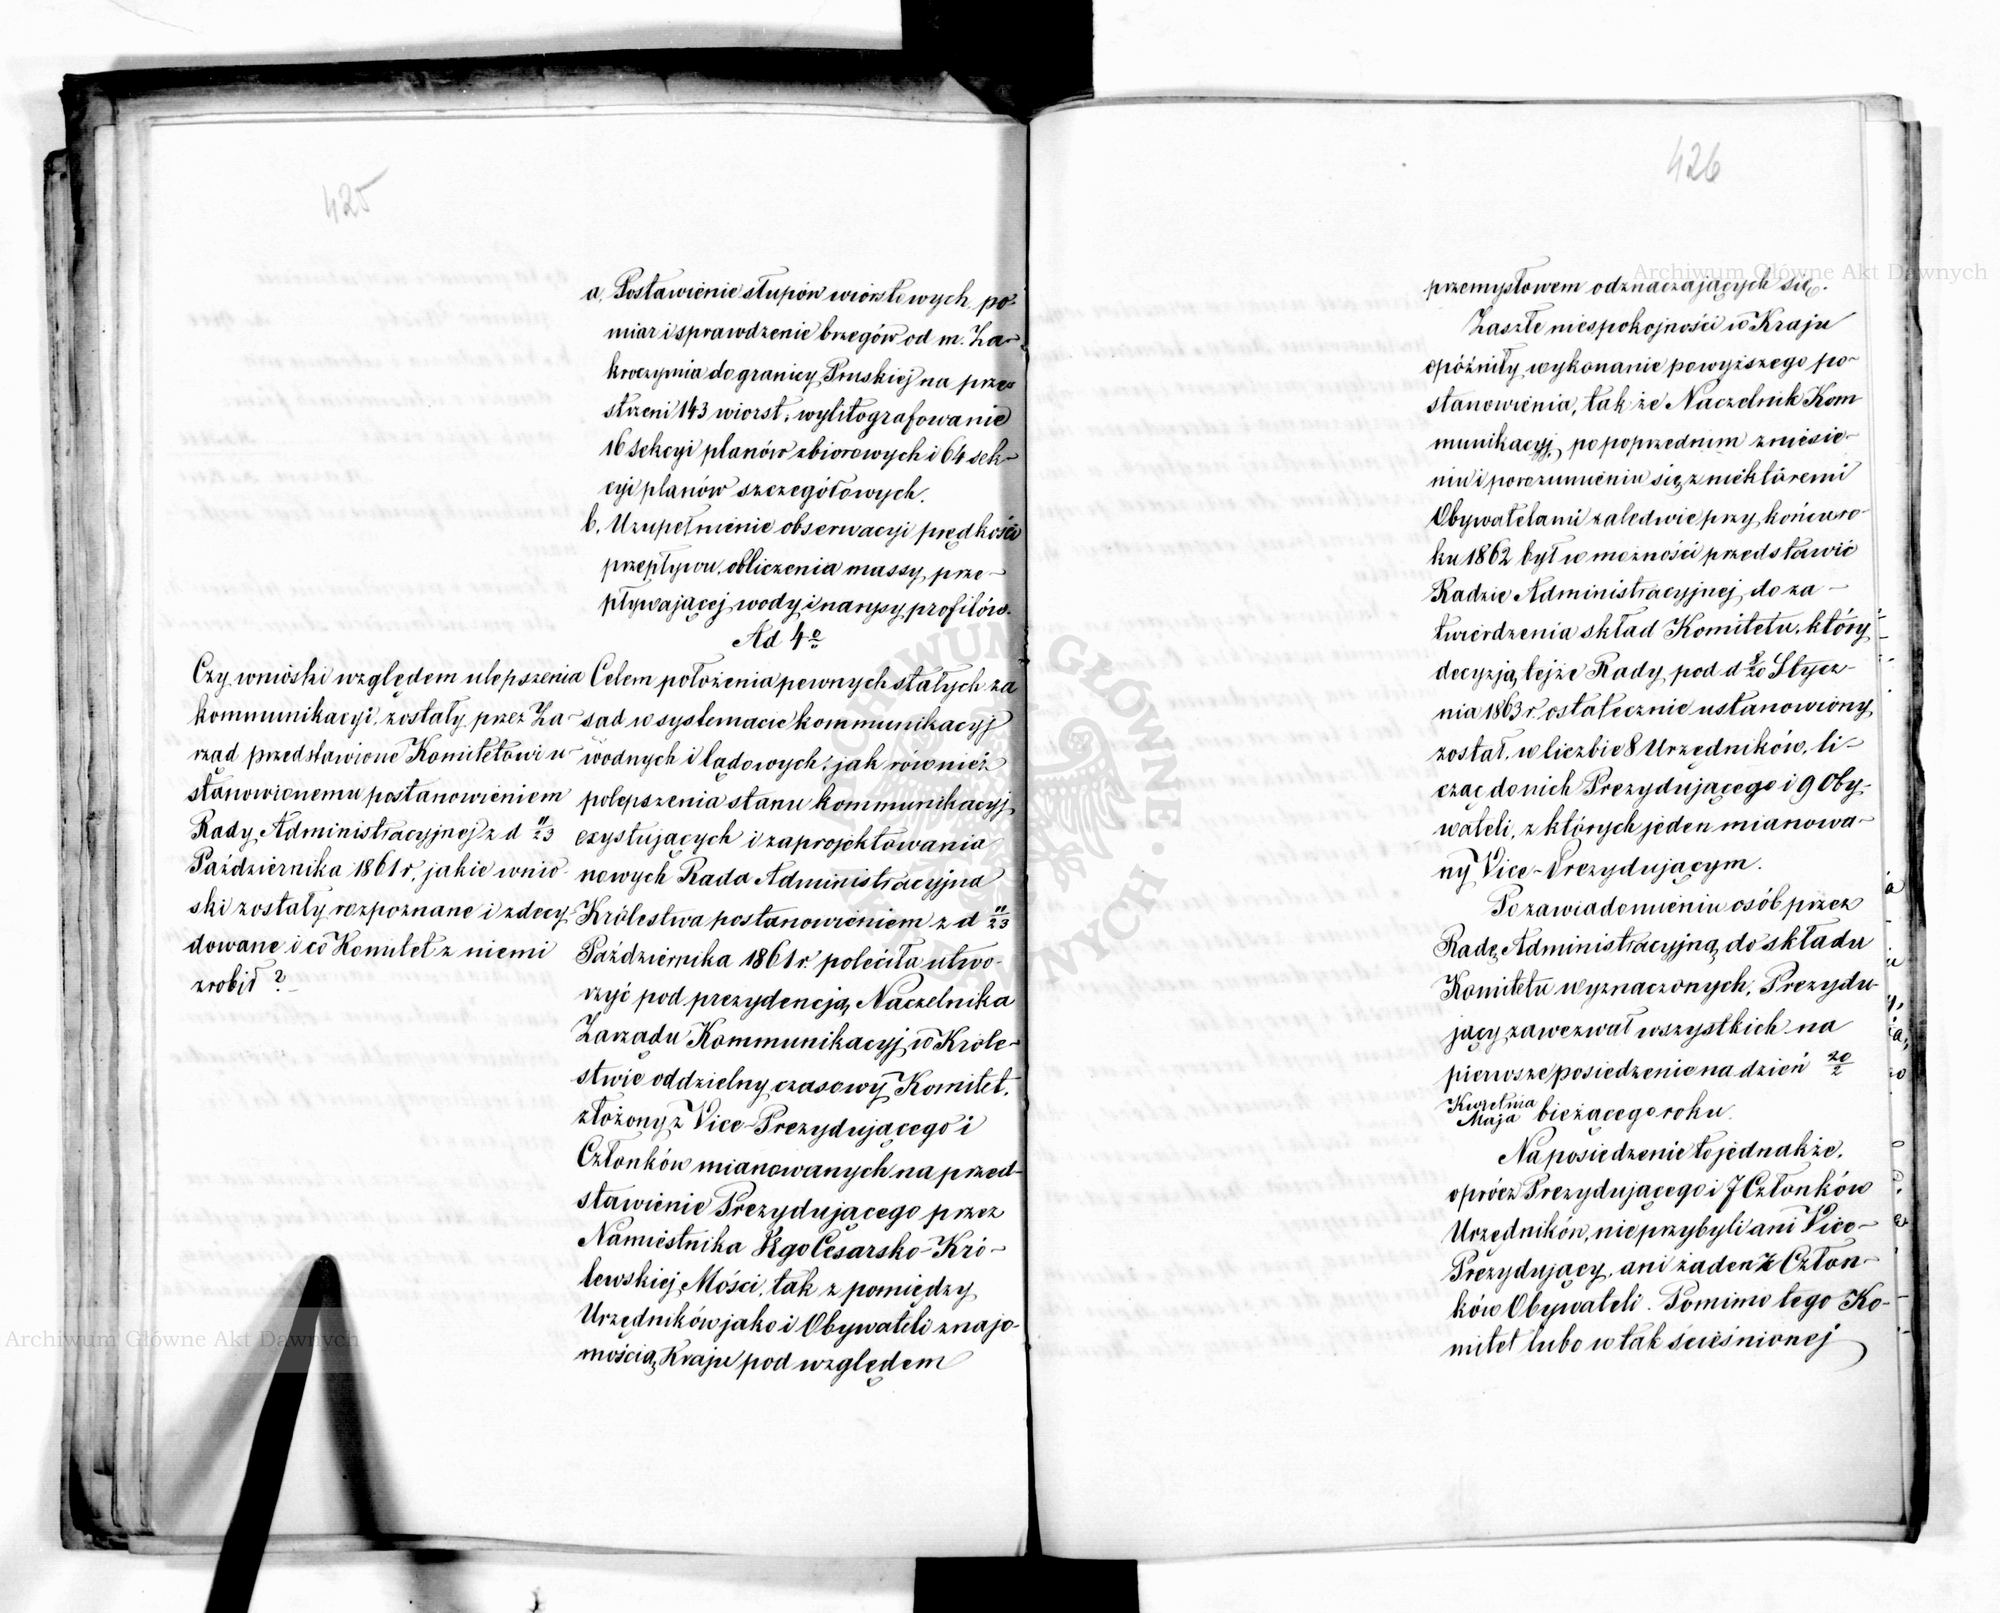 425
a, Postawienie słupów wiorstowych, po-
miar i sprawdzenie brzegów od m. Za-
kroczymia do granicy Pruskiej na prze-
strzeni 143 wiorst, wylitografowanie
16 sekcyi planów zbiorowych i 64 sek-
cyi planów szczegółowych.
b. Uzupełnienie obserwacyi prędkości
przepływu, obliczenia massy prze-
pływającej wody, i narysy profilów.
Ad 4o
Czy wnioski względem ulepszenia
kommunikacyi, zostały przez Za-
rząd przedstawione Komitetowi u-
stanowionemu postanowieniem
Rady Administracyjnej z d 11/23
Października 1861 r, jakie wnio-
ski zostały rozpoznane i zdecy-
dowane i co Komitet z niemi
zrobił?
Celem położenia pewnych stałych za-
sad w systemacie kommunikacyj
wodnych i lądowych, jak również
polepszenia stanu kommunikacyj
exystujących i zaprojektowania
nowych Rada Administracyjna
Królestwa postanowieniem z d 11/23
Października 1861 r. poleciła utwo-
rzyć pod prezydencją Naczelnika
Zarządu Kommunikacyj w Króle-
stwie oddzielny czasowy Komitet,
złożony z Vice-Prezydującego i
Członków mianowanych na przed-
stawienie Prezydującego przez
Namiestnika Jego Cesarsko-Kró-
lewskiej Mości, tak z pomiędzy
Urzędników jako i Obywateli znajo-
mością Kraju pod względem
426
przemysłowem odznaczających się.
Zaszłe niespokojności w Kraju
opóźniły wykonanie powyższego po-
stanowienia, tak że Naczelnik Kom
munikacyj, po poprzednim zniesie-
niu i porozumieniu się z niektóremi
Obywatelami zaledwie przy końcu ro-
ku 1862 był w możności przedstawić
Radzie Administracyjnej do za-
twierdzenia skład Komitetu, który
decyzją tejże Rady pod d 8/20 Stycz-
nia 1863 r. ostatecznie ustanowiony
został, w liczbie 8 Urzędników, li-
cząc do nich Prezydującego i 9 Oby-
wateli, z których jeden mianowa-
ny Vice-Prezydującym.
Po zawiadomieniu osób przez
Radę Administracyjną do składu
Komitetu wyznaczonych, Prezydu-
jący zawezwał wszystkich na
pierwsze posiedzenie na dzień 20/2
Kwietnia/Maja bieżącego roku.
Na posiedzenie to jednakże,
oprócz Prezydującego i 7 Członków
Urzędników, nie przybyli ani Vice-
Prezydujący, ani żaden z Człon-
ków Obywateli. Pomimo tego Ko-
mitet lubo w tak ścieśnionej
Archiwum Główne Akt Dawnych
Archiwum Główne Akt Dawnych
ARCHIWUM GŁÓWNE AKT DAWNYCH